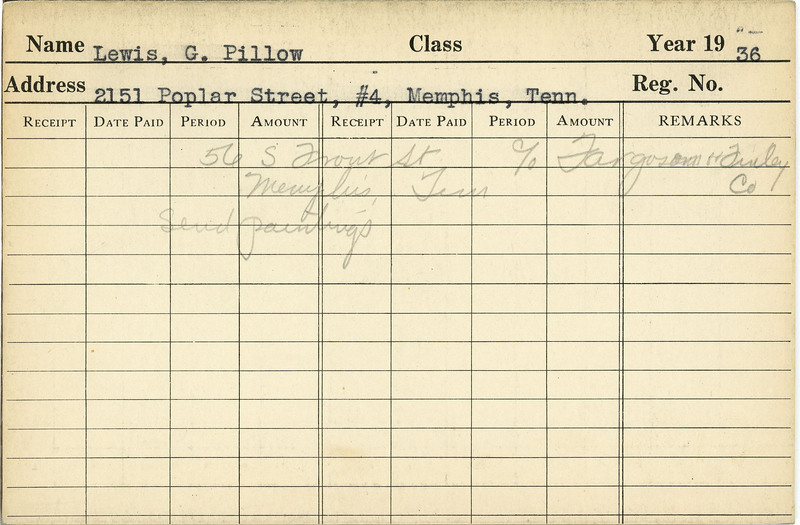 Name Lewis, G. Pillow Class Year 19 36
Address 2151 Poplar Street, #4, Memphis, Tenn. Reg. No.
RECEIPT DATE PAID PERIOD AMOUNT RECEIPT DATE PAID PERIOD AMOUNT REMARKS
56 S Front St c/o Fargoson H Finley
Memphis, Tenn Co
Send paintings